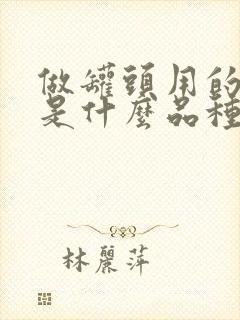 做罐頭用的
是什麼品種
林麗萍